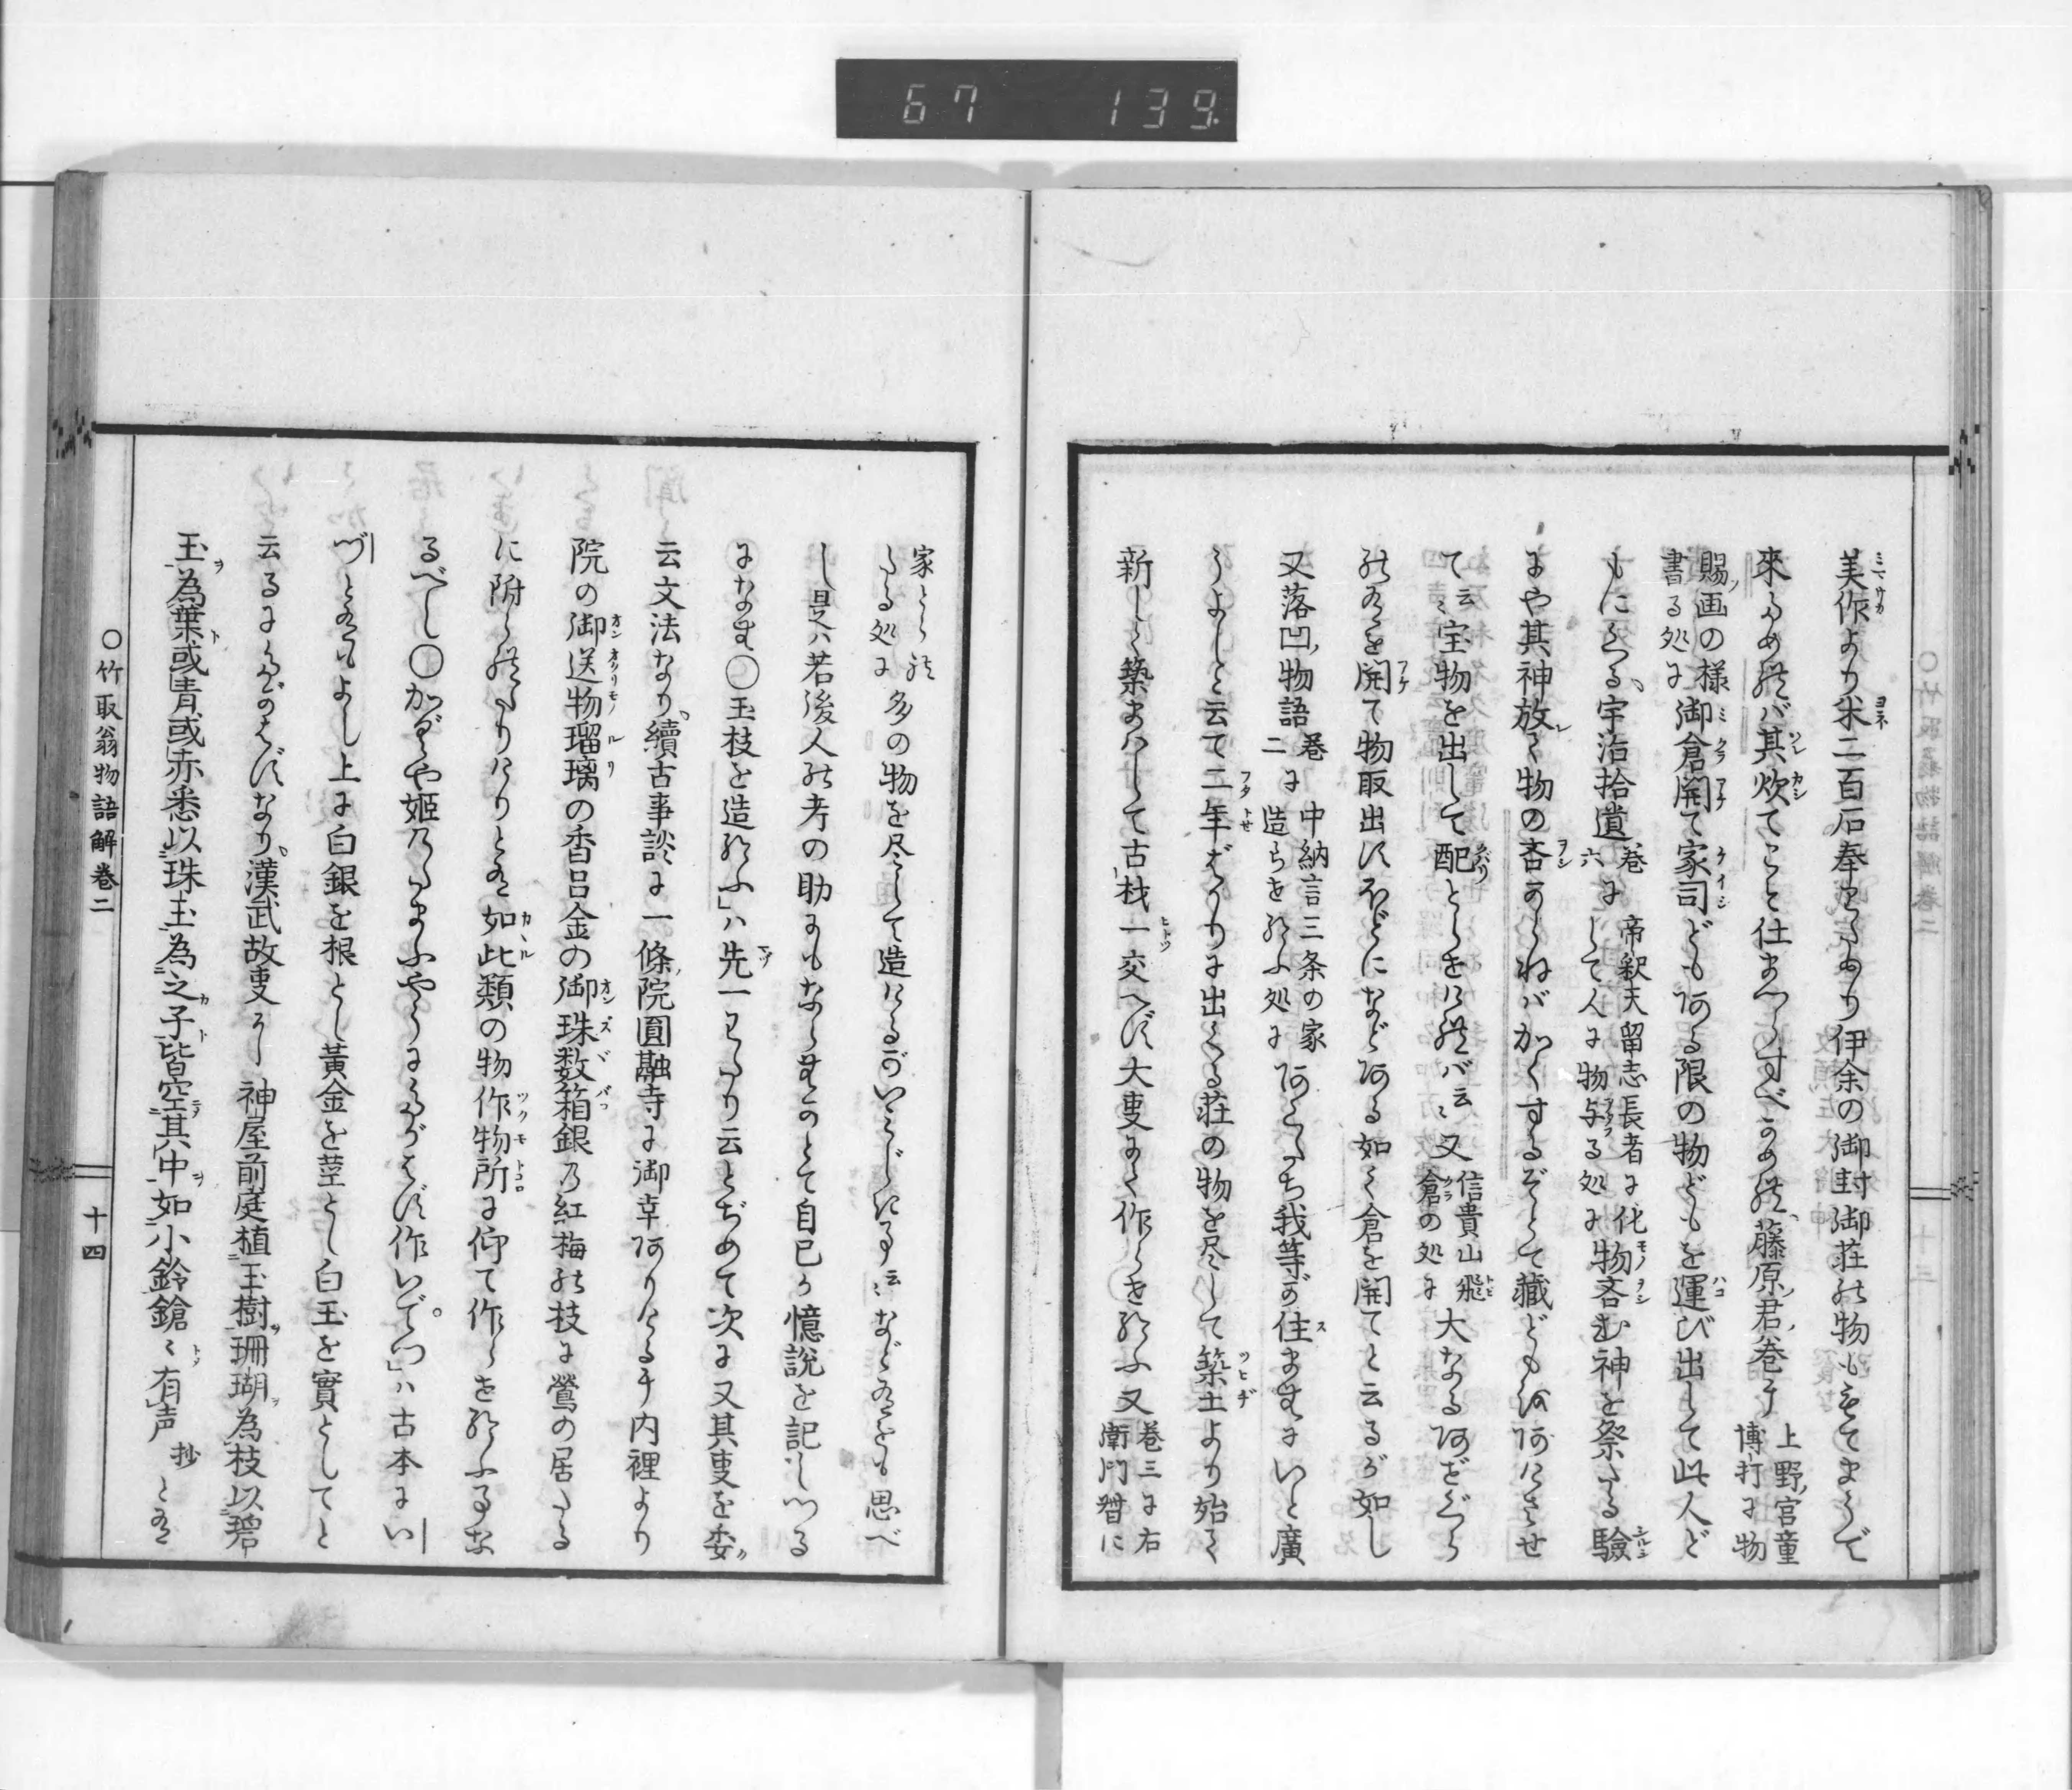 67 139
美作より米二百石奉りたり伊余の御封御荘の物もまてまうで
来ためれバ其炊てこそ仕まつらすべかめれ藤原君巻に 上野宮童博打に物
賜画の様書る処に 御倉開て家司ども有る限の物どもを運び出して此人ど
もにくる宇治拾遺巻六に 帝釈天留志長者に化して人に物与る処に 物吝む神を祭たる験
にや其神放て物の吝からねバかくするぞとて蔵どもをあけさせ
て云々宝物を出して配とらせければ云々又 信貴山飛倉の処に 大なるあぜくら
のあるを開て物取出すほどになどある如く倉を開てと云るが如し
又落凹物語巻二に 中納言三条の家造らせ給ふ処に あこたち我等が住ますにいと広
うよしと云て二年ばかりに出くる荘の物を尽して築土より始て
新しく築まハして古材一交へず大事にて作らせ給ふ又 巻三に右衛門督に
○竹取翁物語解巻二
家とられたる処に 多の物を尽して造けるがいみじき事云々などあるをも思べ
し是ハ若後人の考の助にもならむかとて自己が憶説を記しつる
になむ○玉枝を造給ふ」ハ先一わたり云とぢめて次に又其事を委
云文法なり続古事談に一條院圓融寺に御幸ありける千内裡より
院の御送物瑠璃の香呂金の御珠数箱銀乃紅梅の枝に鶯の居たる
に附られたりけりとある如此類の物作物所に仰て作らせ給ふるな
るべし○かぐや姫乃たまふやうにたがはず作いでつ」ハ古本にい
づとあるもよし上に白銀を根とし黄金を茎とし白玉を實としてと
云るにたがはずなり漢武故事に 神屋前庭植玉樹珊瑚為枝以碧
玉為葉或青或赤悉以珠玉為之子皆空其中如小鈴鎗々有声抄とある
○竹取翁物語解巻二
十四